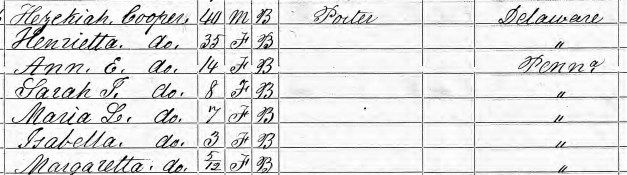 Hezekiah Cooper. 40 M B Porter Delaware
Henrietta. do. 35 F B "
Ann. E. do. 14 F B Penna
Sarah T. do. 8 F B "
Maria L. do. 7 F B "
Isabella. do. 3 F B "
Margaretta. do. 5/12 F B "